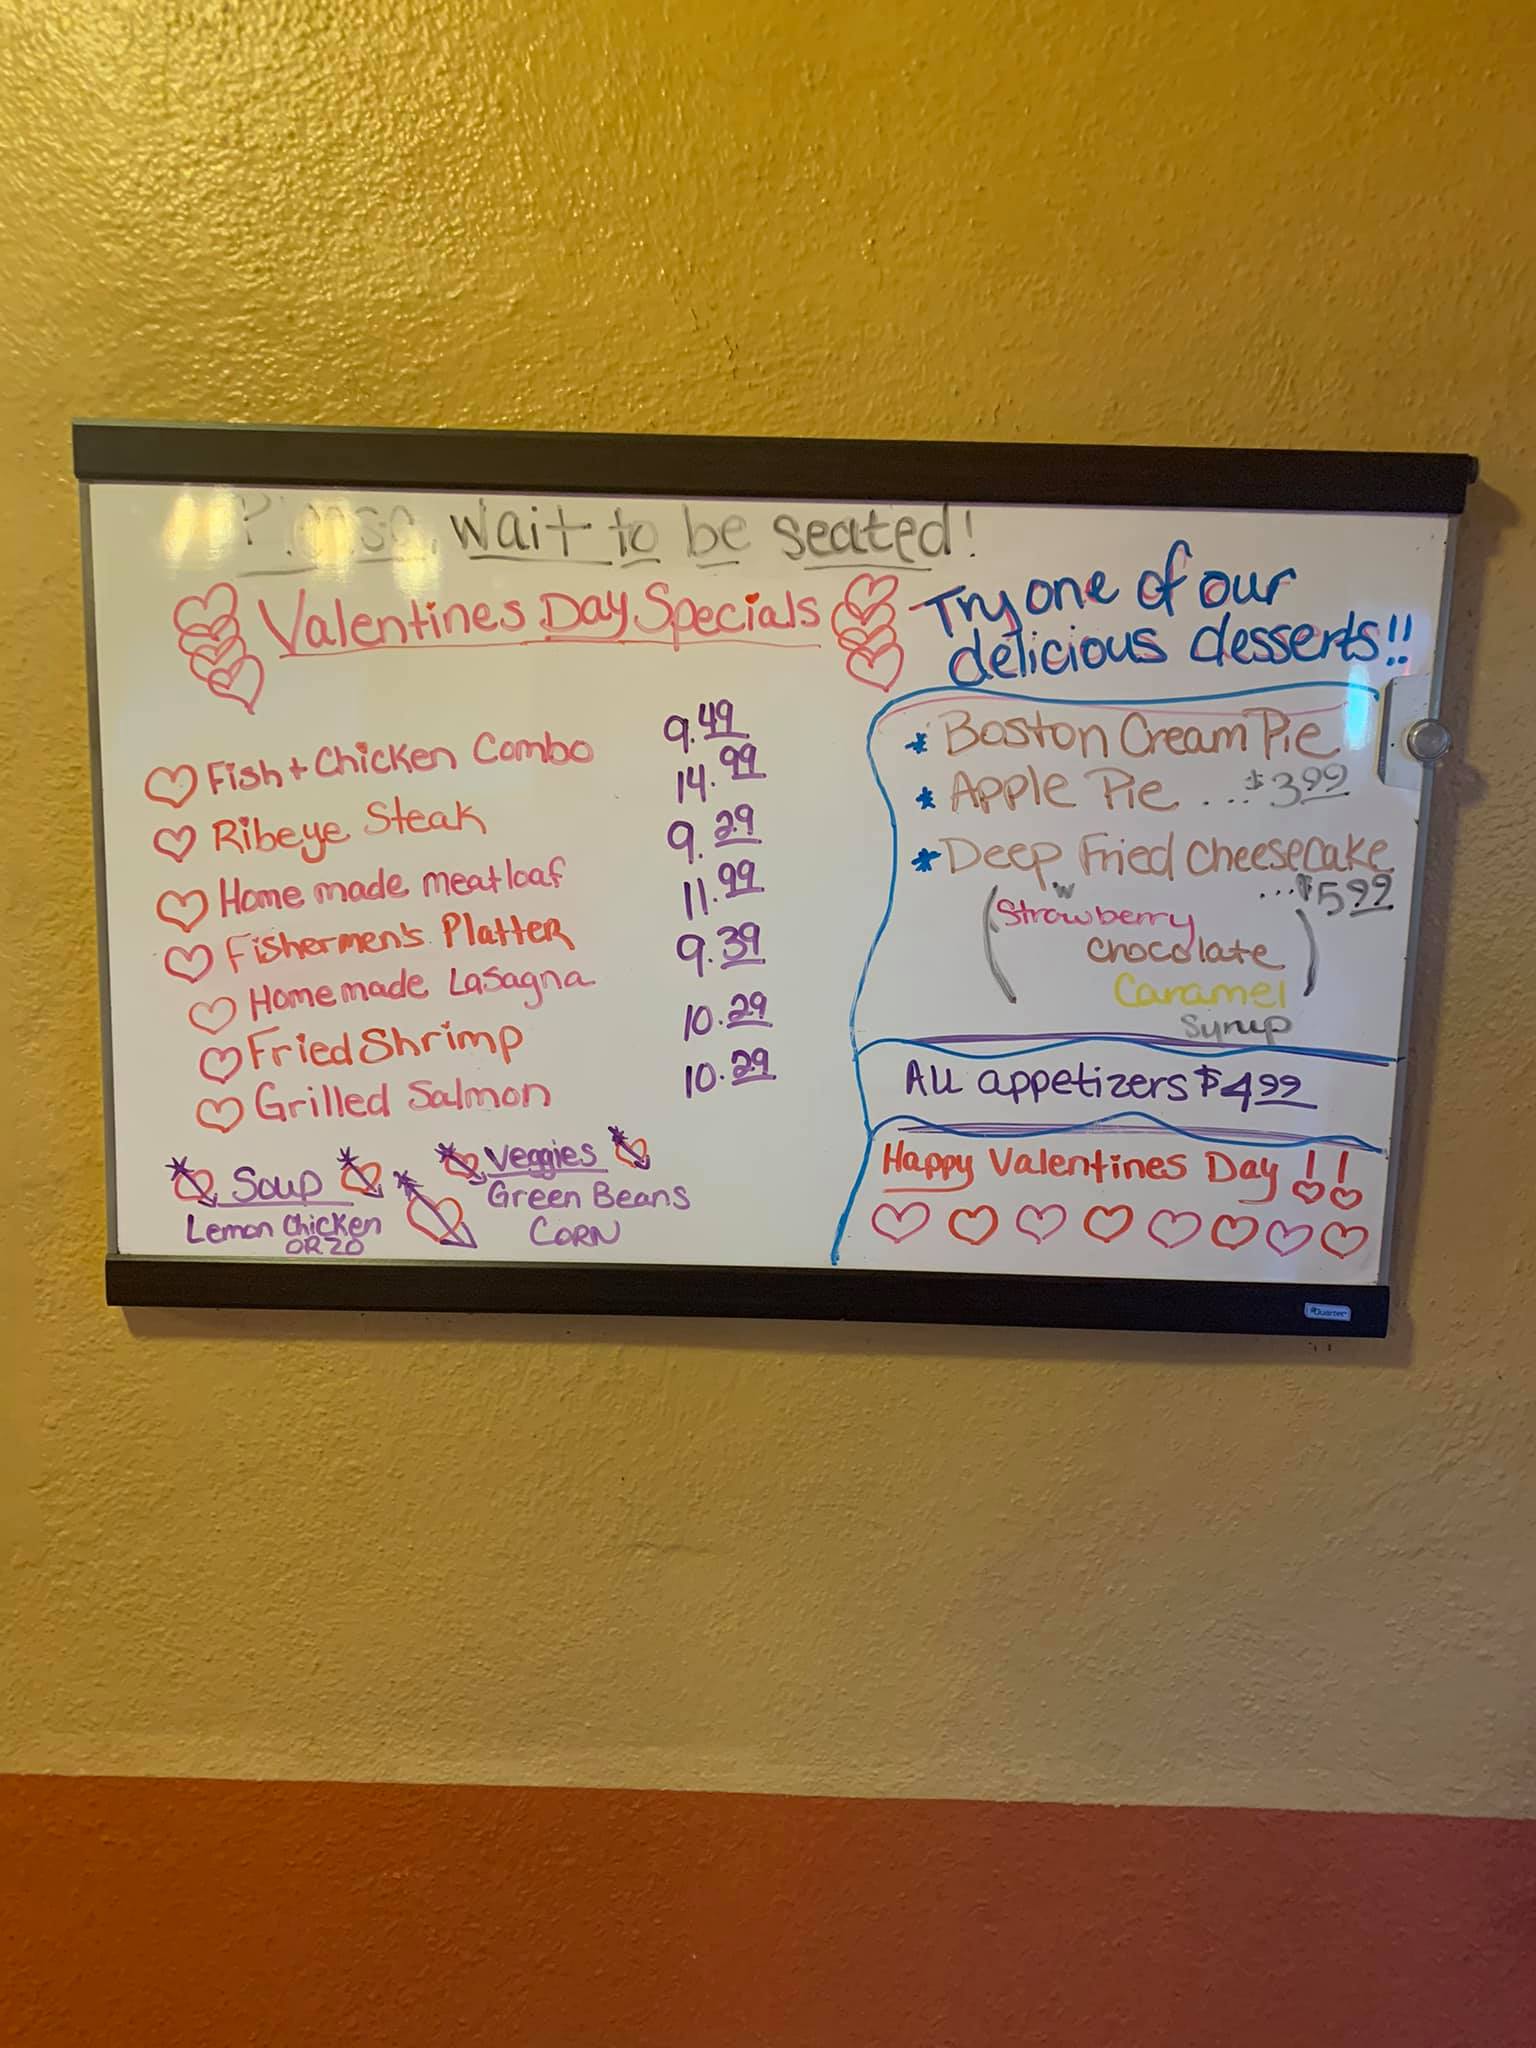 Please wait to be seated!
Valentines Day Specials
Fish + Chicken Combo 9.49
Ribeye Steak 14.99
Home made meatloaf 9.29
Fishermen's Platter 11.99
Home made Lasagna 9.39
Fried Shrimp 10.29
Grilled Salmon 10.29
Soup
Lemon Chicken
ORZO
Veggies
Green Beans
CORN
Try one of our
delicious desserts!!
* Boston Cream Pie
* Apple Pie ...$3.99
* Deep Fried Cheesecake
...$5.99
w
(Strawberry
Chocolate
Caramel)
Syrup
All appetizers $4.99
Happy Valentines Day !!
Quartet